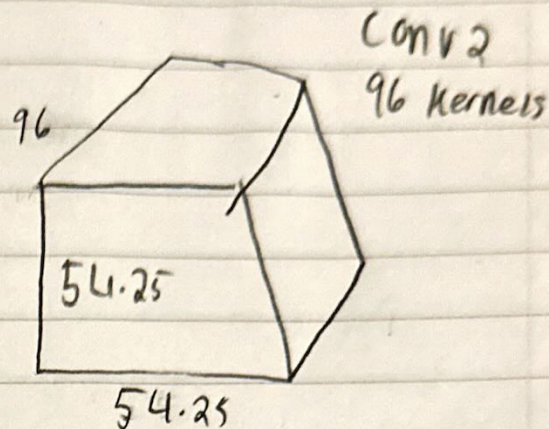 Conv2
96 Kernels
96
54.25
54.25